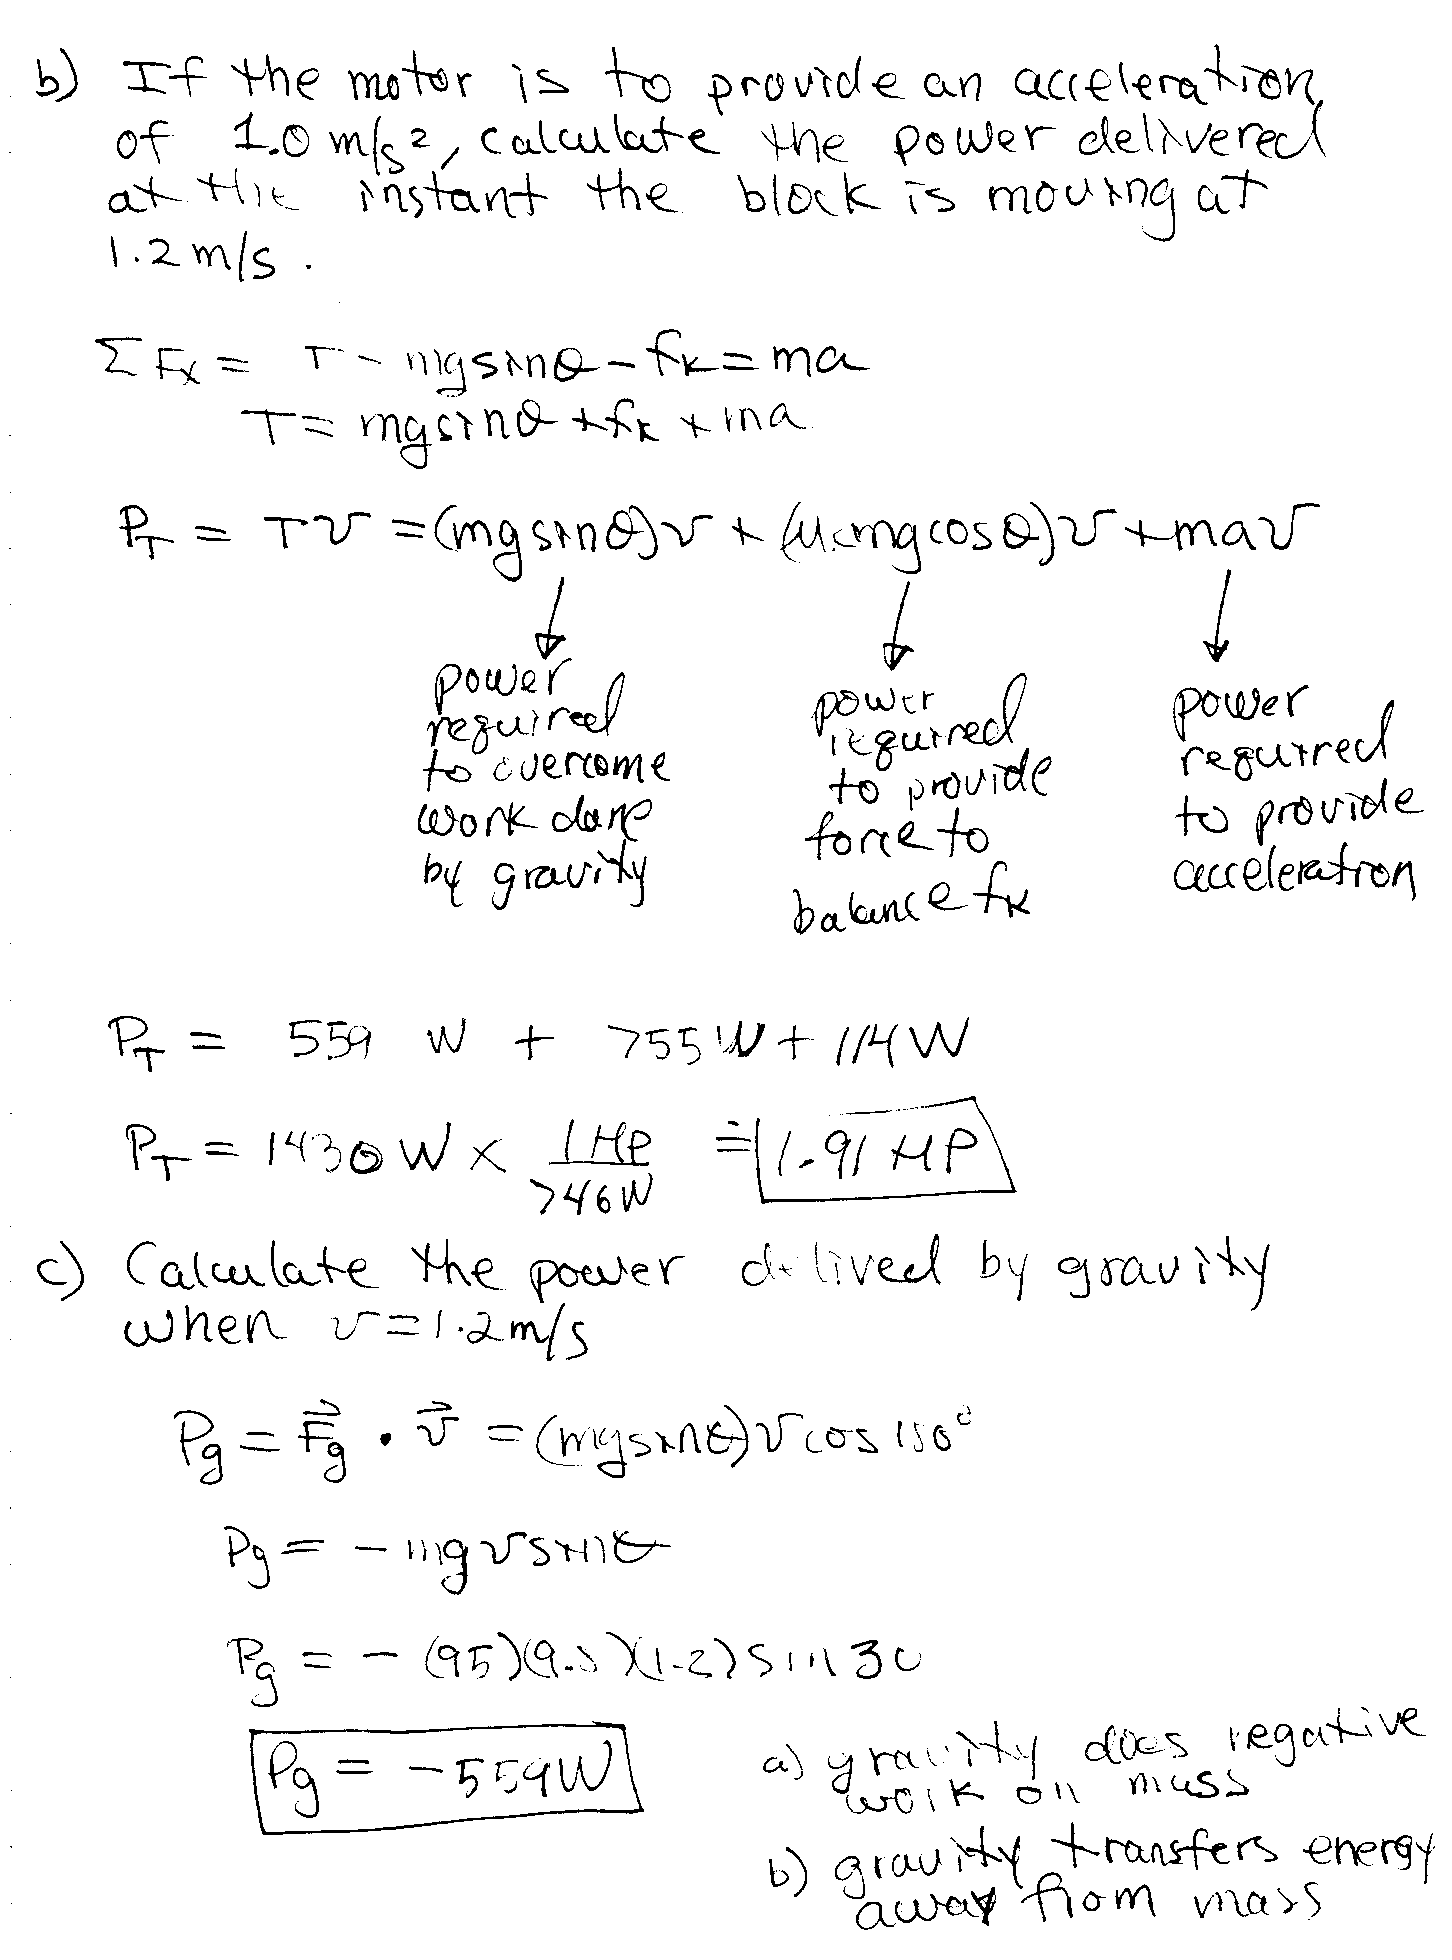 b) If the motor is to provide an acceleration
of 1.0 m/s², calculate the power delivered
at the instant the block is moving at
1.2 m/s.
ΣFx = T - mgsinθ - fk = ma
T = mgsinθ + fk + ma
PT = Tv = (mgsinθ)v + (μkmgcosθ)v + mav
power
required
to overcome
work done
by gravity
power
required
to provide
force to
balance fk
power
required
to provide
acceleration
PT = 559 W + 755 W + 114 W
PT = 1430 W × 1 HP / 746 W = 1.91 HP
c) Calculate the power delived by gravity
when v = 1.2 m/s
Pg = F⃗g · v⃗ = (mgsinθ)v cos 180°
Pg = - mgvsinθ
Pg = - (95)(9.8)(1.2) sin 30
Pg = -559W
a) gravity does negative
work on mass
b) gravity transfers energy
away from mass